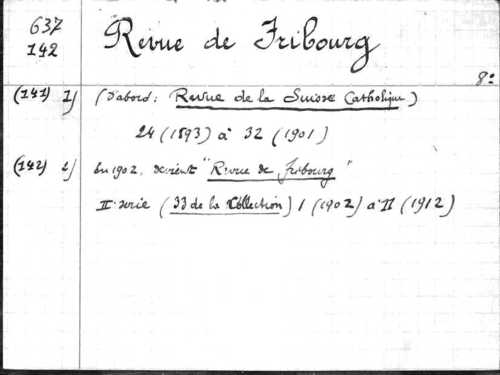 637
142
Revue de Fribourg
8º
(141) 1) (d'abord: Revue de la Suisse Catholique)
24 (1893) à 32 (1901)
(142) 2) En 1902, devient "Revue de Fribourg"
II serie (33 de la Collection) 1 (1902) à 11 (1912)